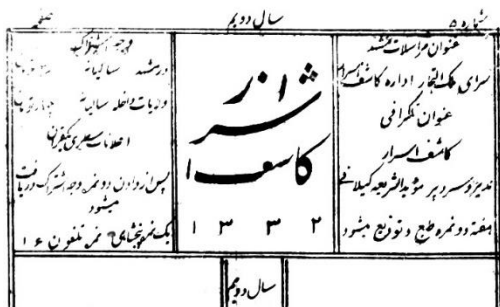 شماره ۵
سال دویم
صفحه
عنوان مراسلات مشهد
سرای ملک التجار اداره کاشف اسرار
عنوان تلگرافی
کاشف اسرار
مدیر و سردبیر مؤید الشریعه گیلانی
هفته دو نمره طبع و توزیع میشود
کاشف اسرار
۱۳۳۲
وجه اشتراک
در مشهد سالیانه
ولایات داخله سالیانه
اعلانات سطری یکقران
پس از دادن دو نمره وجه اشتراک دریافت
میشود
یک نمره نمره تلفون ۱۶
سال دویم